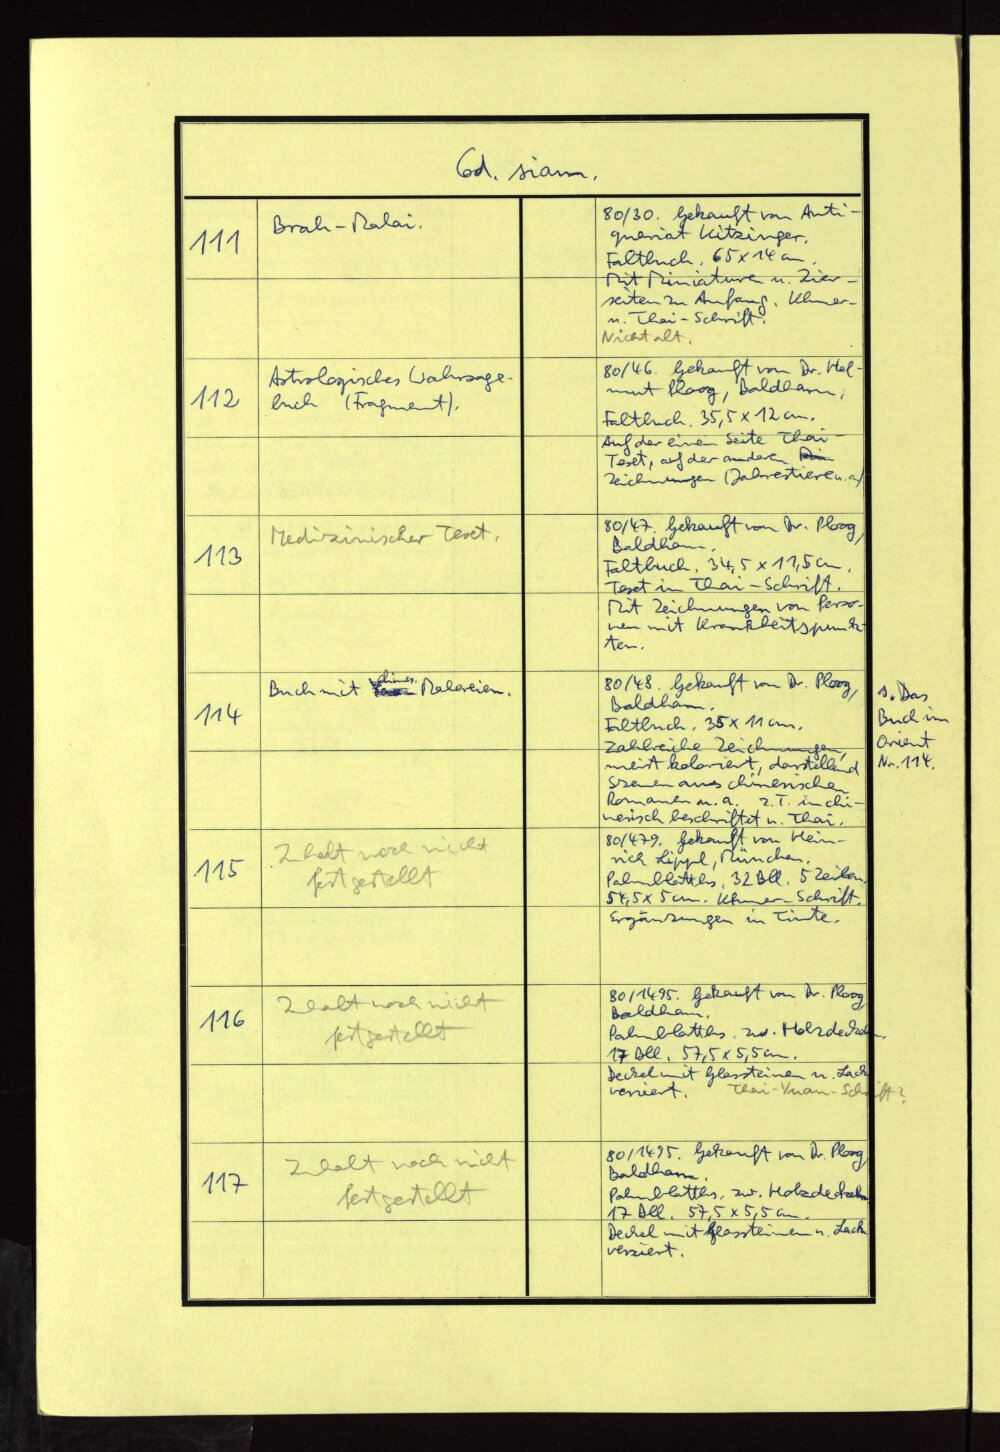 Cod. siam.
111
Brah-Malai.
80/30. Gekauft von Anti-
quariat Kitzinger.
Faltbuch. 65 x 14 cm.
Mit Miniaturen u. Zier-
seiten zu Anfang. Khmer-
u. Thai-Schrift.
Nicht alt.
112
Astrologisches Wahrsage-
buch (Fragment).
80/46. Gekauft von Dr. Hel-
mut Ploog, Baldham.
Faltbuch. 35,5 x 12 cm.
Auf der einen Seite Thai-
Text, auf der anderen
Zeichnungen (Jahrestiere u. a.)
113
Medizinischer Text.
80/47. Gekauft von Dr. Ploog,
Baldham.
Faltbuch. 34,5 x 11,5 cm.
Text in Thai-Schrift.
Mit Zeichnungen von Perso-
nen mit Krankheitspunk-
ten.
114
Buch mit chines. Malereien.
80/48. Gekauft von Dr. Ploog,
Baldham.
Faltbuch. 35 x 11 cm.
Zahlreiche Zeichnungen,
meist koloriert, darstellend
Szenen aus chinesischen
Romanen u. a. z. T. in chi-
nesisch beschriftet u. Thai.
s. Das
Buch im
Orient
Nr. 114.
115
Inhalt noch nicht
festgestellt
80/479. Gekauft von Hein-
rich Lippl, München.
Palmblatths. 32 Bll. 5 Zeilen.
54,5 x 5 cm. Khmer-Schrift.
Ergänzungen in Tinte.
116
Inhalt noch nicht
festgestellt
80/1495. Gekauft von Dr. Ploog
Baldham.
Palmblatths. zw. Holzdeckeln.
17 Bll. 57,5 x 5,5 cm.
Deckel mit Glassteinen u. Lack
verziert. Thai-Yuan-Schrift?
117
Inhalt noch nicht
festgestellt
80/1495. Gekauft von Dr. Ploog
Baldham.
Palmblatths. zw. Holzdeckeln
17 Bll. 57,5 x 5,5 cm.
Deckel mit Glassteinen u. Lack
verziert.